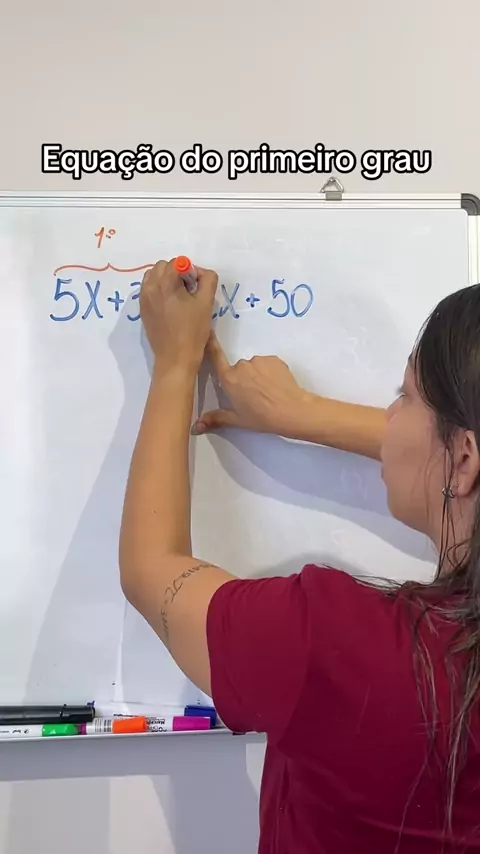 Equação do primeiro grau
1º
5x+3
x+50